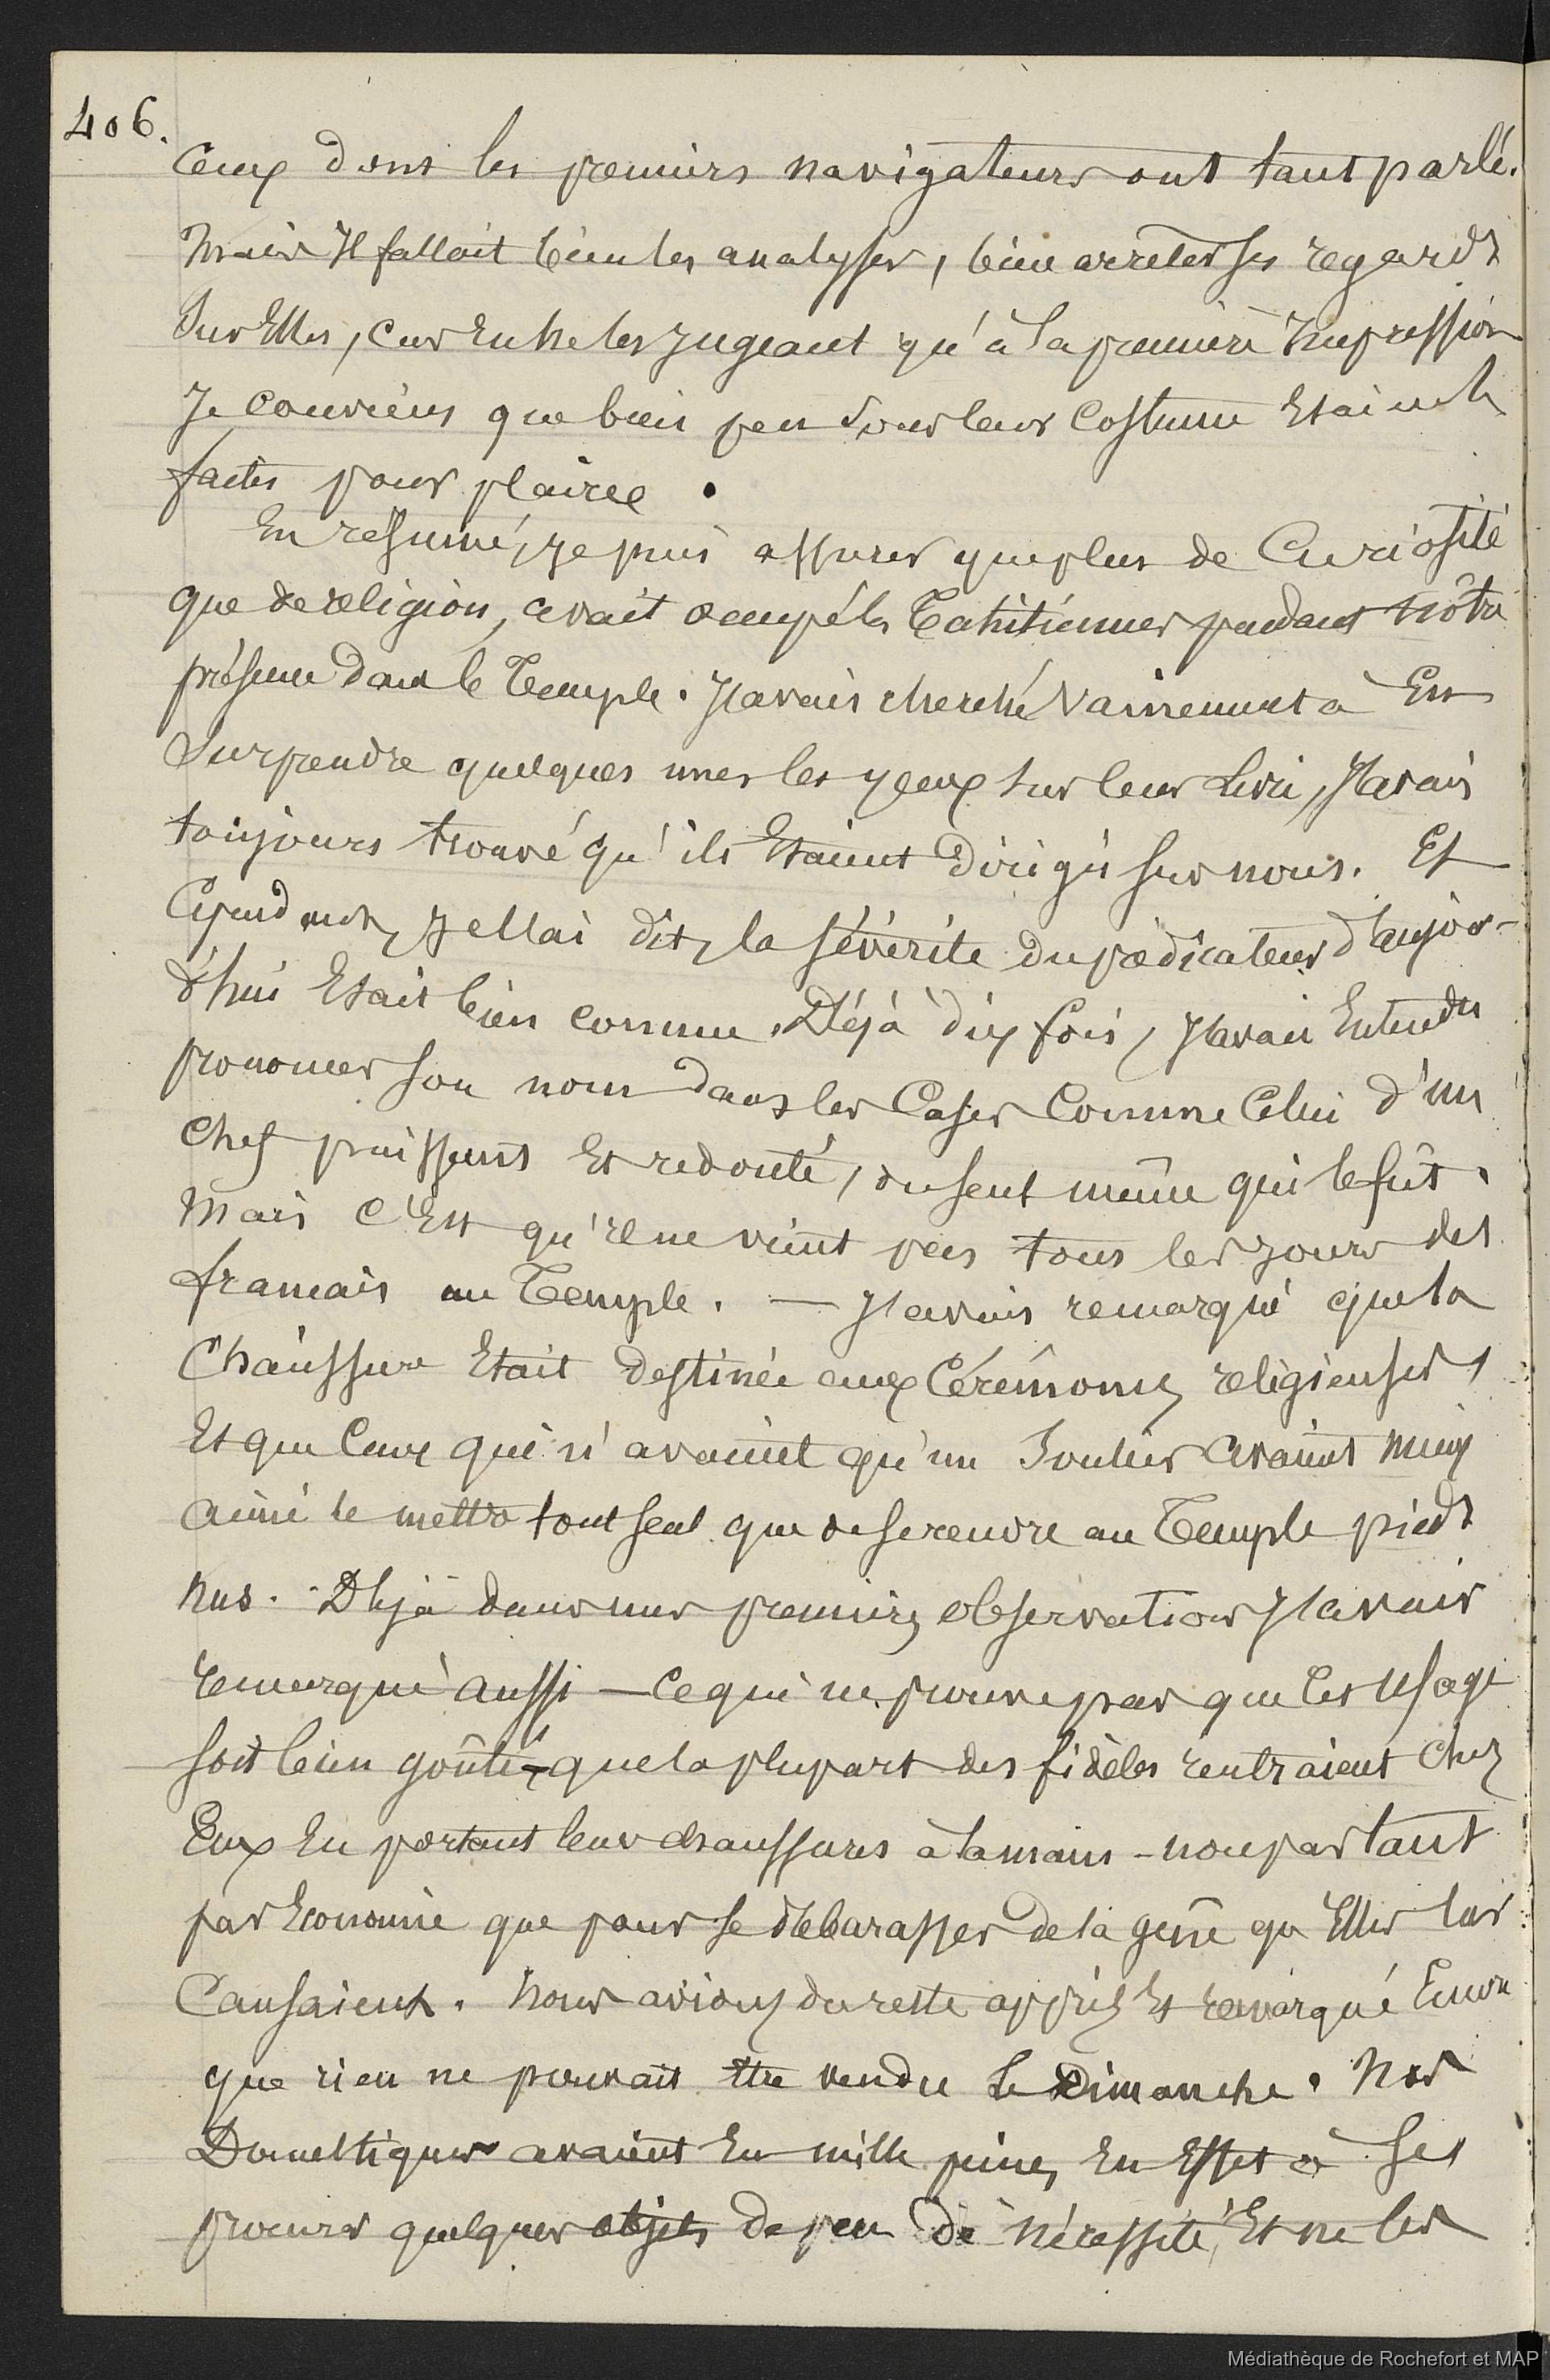 406.
Ceux dont les premiers navigateurs ont tant parlé.
Mais Il fallait bien les analyser, bien arrêter ses regards
Sur Elles, car En ne les Jugeant qu'à la première Impression
Je conviens que bien peu sous leur Costume Etaient
faites pour plaire.
En résumé, je puis assurer que plus de Curiosité
que de religion, avait occupé les Tahitiennes pendant nôtre
présence dans le Temple. J'avais cherché vainement à En
Surprendre quelques unes les yeux sur leur Livre, J'avais
toujours trouvé qu'ils Etaient Dirigés sur nous. Et
Cependant, Je l'ai dit, la sévérité du prédicateur d'aujour-
d'hui Etait bien connue. Déjà dix fois, J'avais Entendu
prononcer son nom dans les Cases Comme Celui d'un
Chef puissant Et redouté, du seul même qui le fût.
Mais C'Est qu'il ne vient pas tous les jours des
francais au Temple. — J'avais remarqué que la
Chaussure Etait destinée aux Cérémonies religieuses,
Et que Ceux qui n'avaient qu'un Soulier avaient mieux
aimé le mettre tout seul que de se rendre au Temple pieds
nus. Déjà dans mes premières observations J'avais
remarqué aussi — ce qui ne prouve pas que Cet usage
soit bien goûté, que la plupart des fidèles rentraient Chez
Eux En portant leur chaussures à la main - non pas tant
par Economie que pour se débarasser de la gêne qu'Elles leur
Causaient. Nous avions du reste appris Et remarqué Encore
que rien ne pouvait être vendu le Dimanche. Nos
Domestiques avaient Eu mille peines En Effet à se
procurer quelques objets de peu de nécessité, Et ne les
Médiathèque de Rochefort et MAP